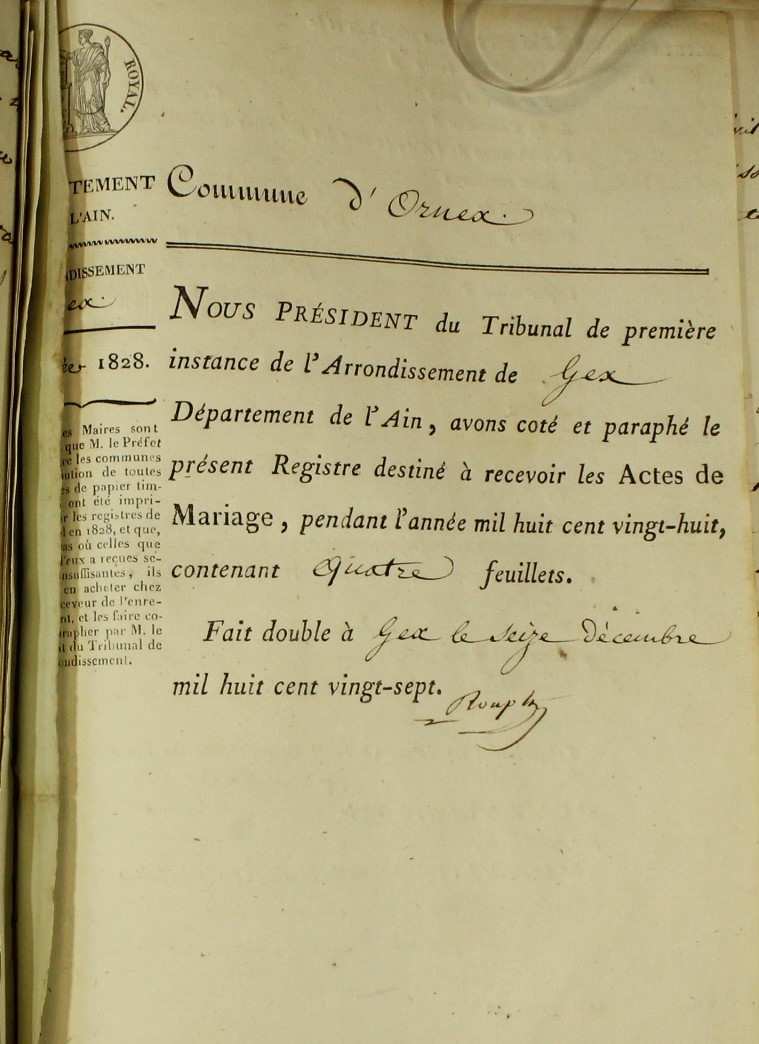 ROYAL.
TEMENT
L'AIN.
DISSEMENT
ex.
1828.
Maires sont
que M. le Préfet
les communes
ution de toutes
de papier tim-
ont été impri-
les registres de
en 1828, et que,
où celles que
a reçues se-
insuffisantes, ils
en acheter chez
ceveur de l'enre-
et les faire co-
rapher par M. le
du Tribunal de
ondissement.
Commune d'Ornex.
NOUS PRÉSIDENT du Tribunal de première
instance de l'Arrondissement de Gex
Département de l'Ain, avons coté et paraphé le
présent Registre destiné à recevoir les Actes de
Mariage, pendant l'année mil huit cent vingt-huit,
contenant quatre feuillets.
Fait double à Gex le seize décembre
mil huit cent vingt-sept.